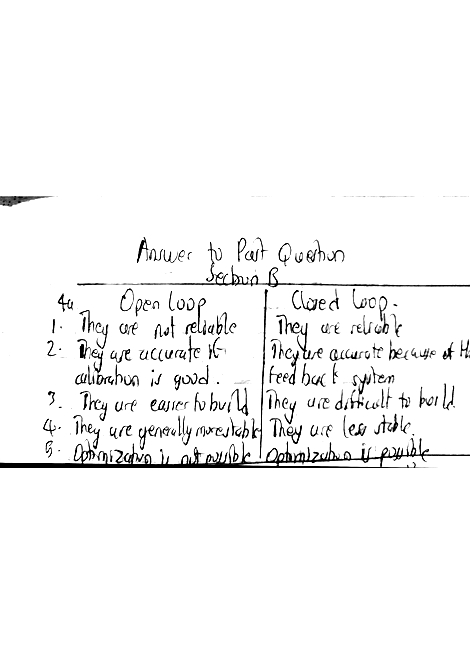 Answer to Past Question
Section B
4a Open Loop | Closed Loop.
1. They are not reliable | They are reliable
2. They are accurate if | They are accurate because of
calibration is good. | feed back system
3. They are easier to build | They are difficult to build
4. They are generally more stable | They are less stable.
5. Optimization is not possible | Optimization is possible